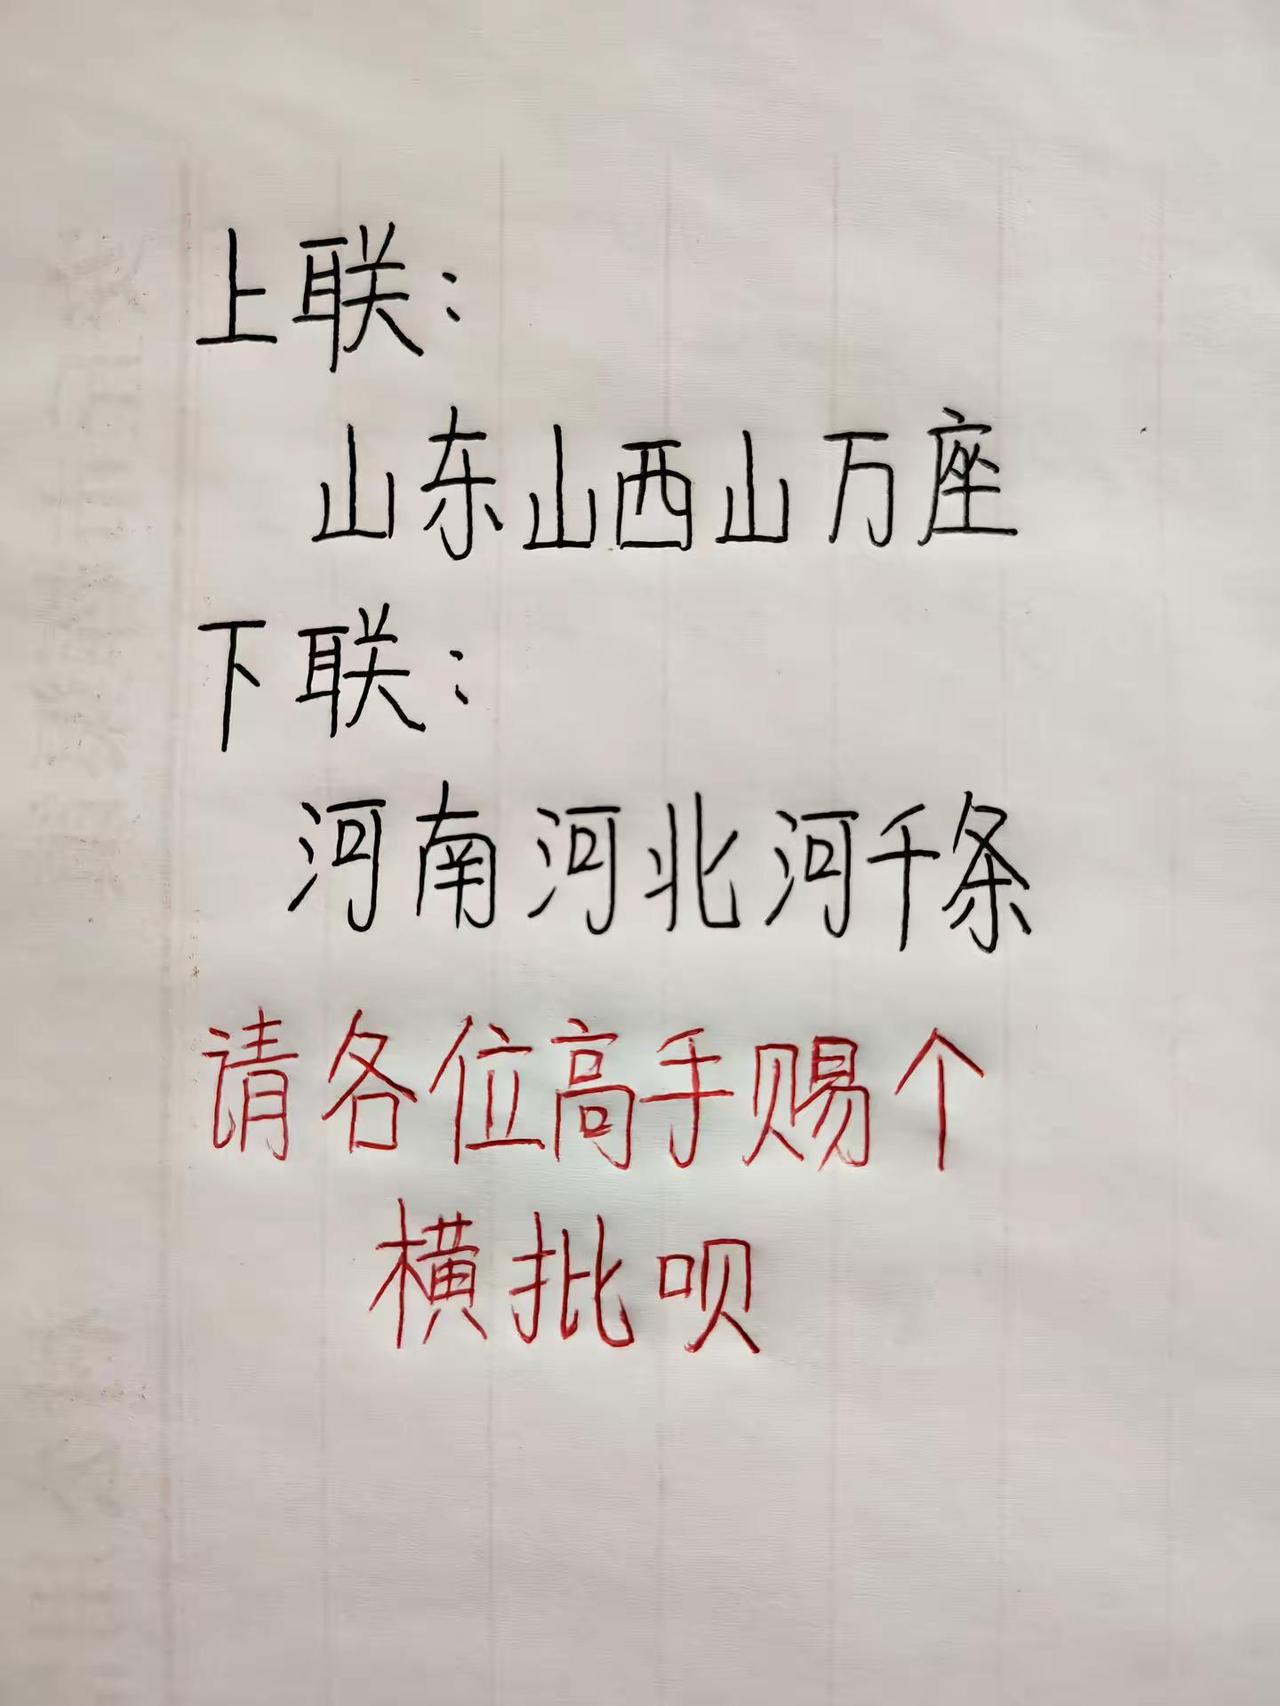 上联：
山东山西山万座
下联：
河南河北河千条
请各位高手赐个
横批呗